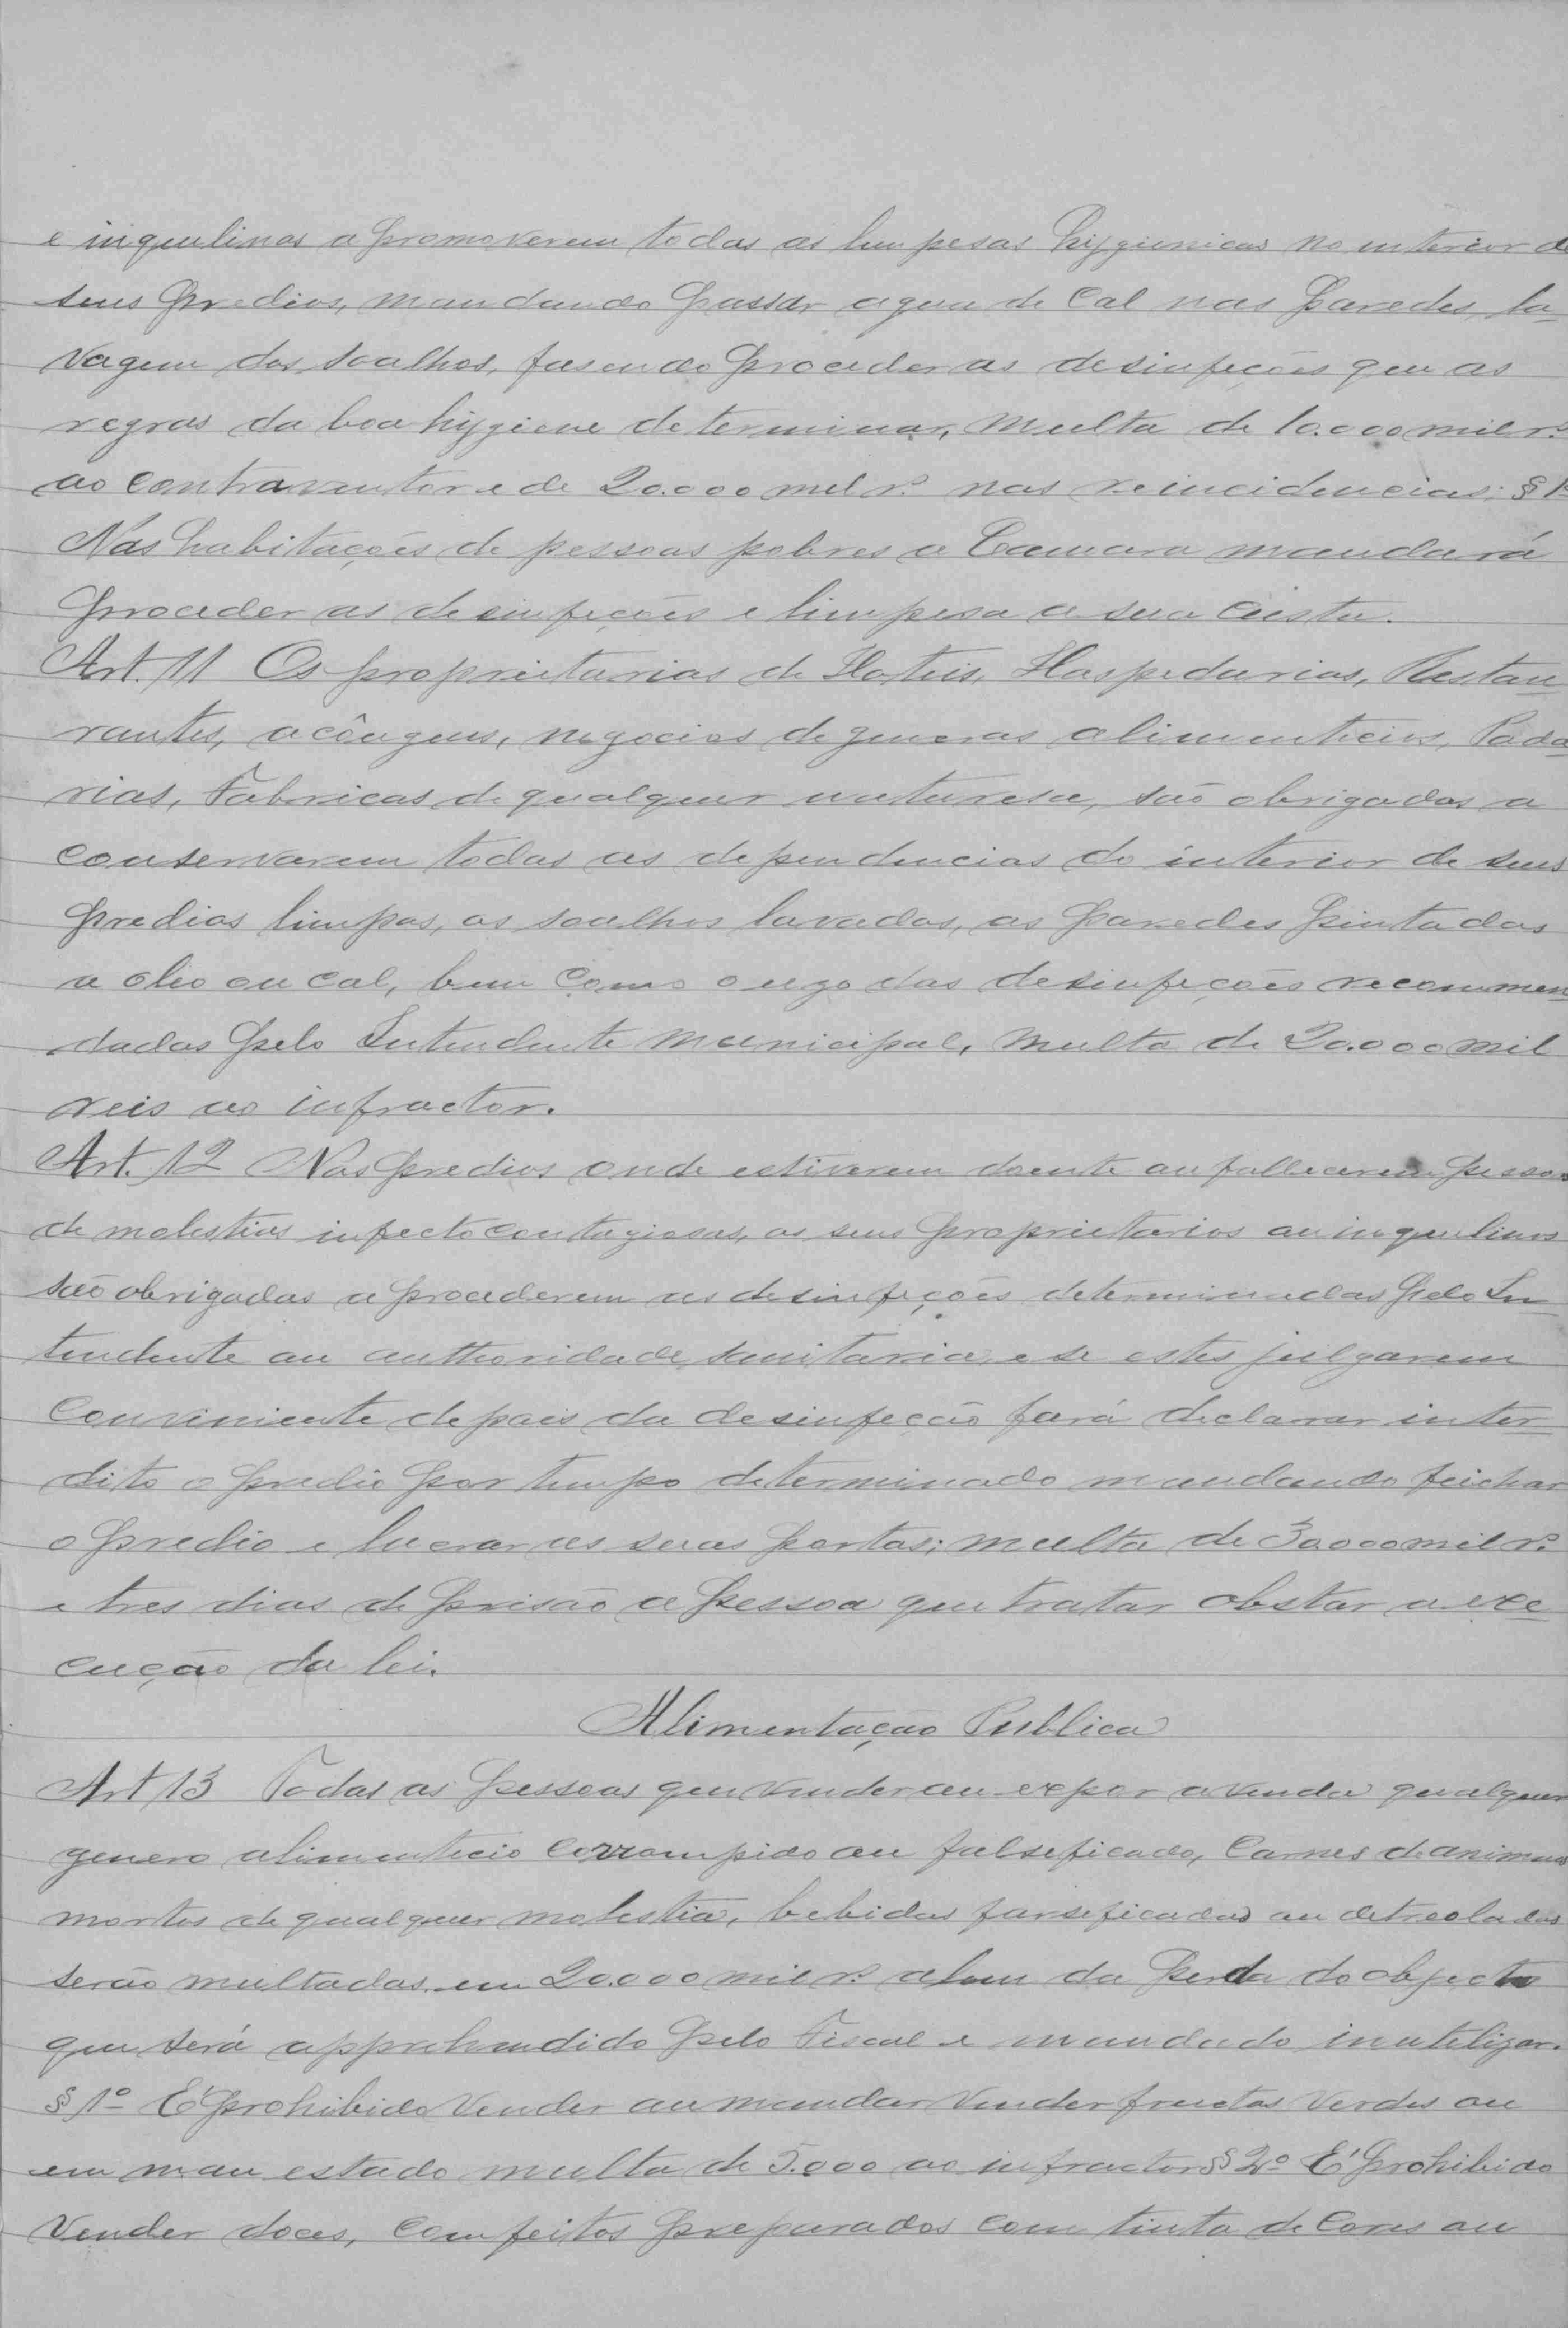 e inquilinos a promoverem todas as limpesas hygienicas no interior de
seus predios, mandando passar agua de Cal nas paredes, la-
vagem dos soalhos, fasendo proceder as desinfeções que as
regras da boa hygiene determinar, multa de 10.000 mil rs.
ao contraventor e de 20.000 mil rs. nas reincidencias: § 1º
Nas habitações de pessoas pobres a Camara mandará
proceder as desinfeções e limpesa a sua custa.
Art. 11 Os proprietarios de Hoteis, Hospedarias, Restau
rantes, açôugues, negocios de generos alimenticios, Pada
rias, Fabricas de qualquer naturesa, são obrigados a
conservarem todas as dependencias do interior de seus
predios limpos, os soalhos lavados, as paredes pintadas
a oleo ou cal, bem como o uzo das desinfeções recommen
dadas pelo Intendente municipal, multa de 20.000 mil
reis ao infractor.
Art. 12 Nos predios onde estiverem doente ou fallecerem pessoas
de molestias infecto contagiosas, os seus proprietarios ou inquilinos
são obrigados a procederem as desinfeções determinadas pelo In-
tendente ou authoridade sanitaria, e se estes julgarem
conveniente depois da desinfecção fará declarar inter-
dito o predio por tempo determinado mandando feichar
o predio e lacrar as suas portas; multa de 30.000 mil rs.
e tres dias de prisão a pessoa que tratar obstar a exe
cução da lei.
Alimentação Publica
Art 13 Todas as pessoas que vender ou expor a venda qualquer
genero alimenticio corrompido ou falseficado, Carnes de animaes
mortos de qualquer molestia, bebidas farseficadas ou
serão multadas em 20.000 mil rs. alem da perda do objecto
que será apprehendido pelo Fiscal e mandado inutelizar.
§ 1º É prohibido vender ou mandar vender fructas verdes ou
em mau estado multa de 5.000 ao infractor § 2º É prohibido
vender doces, comfeitos preparados com tinta de cores ou